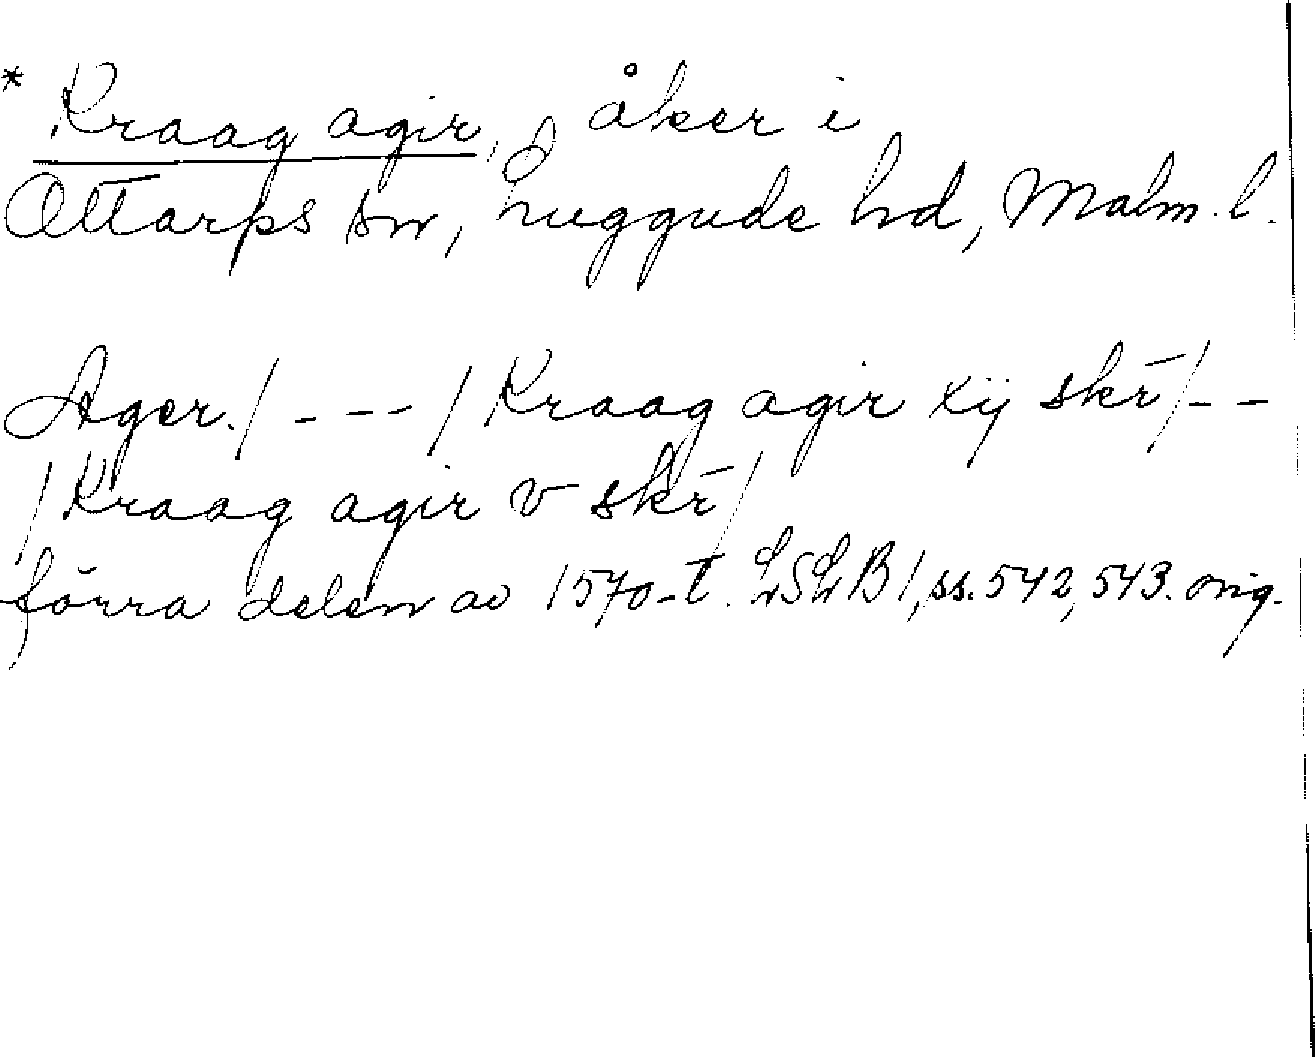 * Kraag agir, åker i
Ottarps sn, Luggude hd, Malm. l.
Ager. / - - - / Kraag agir xij skr̄ / - -
/ Kraag agir v skr̄ /
förra delen av 1570-t. LSLB 1, ss. 542, 543. orig.